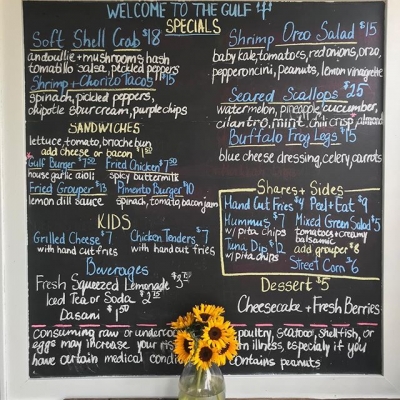 WELCOME TO THE GULF
SPECIALS
Soft Shell Crab $18
andouille + mushroom hash
tomatillo salsa, pickled peppers
Shrimp + Chorizo Tacos $15
spinach, pickled peppers,
chipotle sour cream, purple chips
SANDWICHES
lettuce, tomato, brioche bun
add cheese or bacon $1.50
Gulf Burger
house garlic aioli
Fried Chicken
spicy buttermilk
Fried Grouper $13
lemon dill sauce
Pimento Burger $10
spinach, tomato, bacon jam
KIDS
Grilled Cheese $7
with hand cut fries
Chicken Tenders $7
with hand cut fries
Beverages
Fresh Squeezed Lemonade
Iced Tea or Soda
Dasani $1.50
Shrimp Orzo Salad $15
baby kale, tomatoes, red onions, orzo,
pepperoncini, peanuts, lemon vinaigrette
Seared Scallops $25
watermelon, pineapple, cucumber,
cilantro, mint, chili crisp, almond
Buffalo Frog Legs $15
blue cheese dressing, celery, carrots
Shares + Sides
Hand Cut Fries $4
Peel + Eat $9
Hummus $7
w/ pita chips
Mixed Green Salad $5
tomatoes + creamy
balsamic
add grouper $8
Tuna Dip $12
w/ pita chips
Street Corn $6
Dessert $5
Cheesecake + Fresh Berries
consuming raw or undercoo poultry, seafood, shellfish, or
eggs may increase your ris n illness, especially if you
have certain medical condi contains peanuts